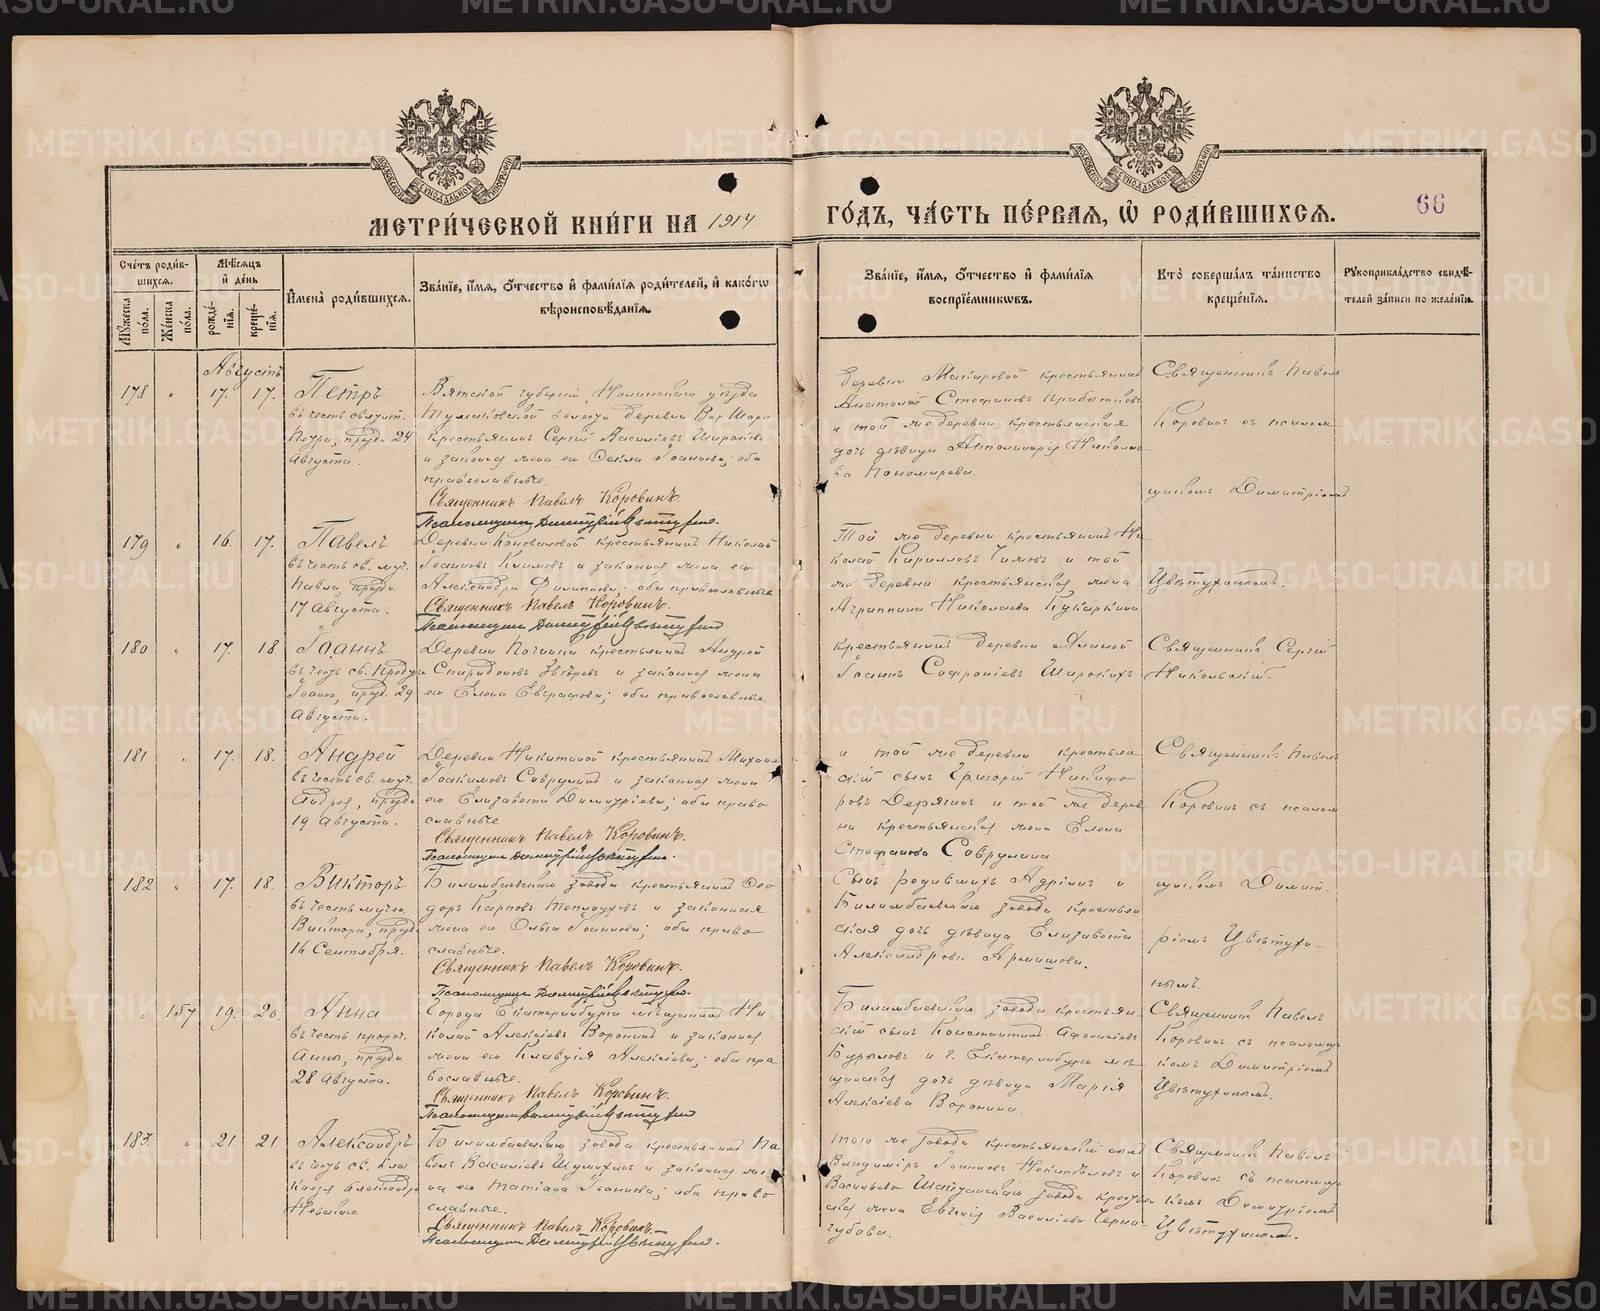 МЕТРИ́ЧЕСКОЙ КНИ́ГИ НА 1914
ГО́ДЪ, ЧА́СТЬ ПЕ́РВАЯ, Ѡ РОДИ́ВШИХСЯ.
66
Сче́тъ роди́вшихся.
Му́жеска по́ла.
Же́нска по́ла.
Мѣ́сяцъ и́ де́нь
рожде́нїя.
креще́нїя.
И́мена̀ роди́вшихся.
Зва́нїе, и́мя, ѻ́тчество и́ фами́лїя роди́телей, и́ како́гѡ
вѣроисповѣ́данїя.
Зва́нїе, и́мя, ѻ́тчество и́ фами́лїя
воспрїе́мникѡвъ.
Кто̀ соверша́лъ та́инство
креще́нїя.
Рꙋкоприкла́дство свидѣ́-
телей за́писи по жела́нїю.
Августъ
178 " 17. 17. Петръ
въ честь святит.
Петра, празд. 24
Августа.
Вятской губерніи, Нолинскаго уѣзда
крестьянинъ Сергій Василіевъ Широкихъ
и законная жена его Ѳекла Іоаннова; оба
православные.
Священникъ Павелъ Коровинъ.
Псаломщикъ Димитрій Цвѣтухинъ.
деревни Макаровой крестьянинъ
Анатолій Стефановъ
и той же деревни крестьянская
дочь дѣвица Аполлинарія Николае-
ва Пономарева.
Священникъ Павелъ
Коровинъ съ псалом
щикомъ Димитріемъ
179 " 16. 17. Павелъ
въ честь св. муч.
Павла, празд.
17 Августа.
Деревни Коноваловой крестьянинъ Николай
Іоанновъ Климовъ и законная жена его
Александра Филиппова; оба православные
Священникъ Павелъ Коровинъ.
Псаломщикъ Димитрій Цвѣтухинъ
Той же деревни крестьянинъ Ни-
колай Кирилловъ и той
же деревни крестьянская жена
Агриппина Николаева Кукаркина
Цвѣтухинымъ.
180 " 17. 18 Іоаннъ
въ честь св. Предтечи
Іоанна, празд. 29
Августа.
Деревни Починка крестьянинъ Андрей
Спиридоновъ и законная жена
его Елена Евграфова; оба православные
крестьянинъ деревни
Іоаннъ Софроніевъ Широкихъ
Священникъ Сергій
Никольскій.
181 " 17. 18. Андрей
въ честь св. муч.
Андрея, празд.
19 Августа.
Деревни Никитиной крестьянинъ Михаилъ
Іоакимовъ Саврулинъ и законная жена
его Елизавета Димитріева; оба право
славные
Священникъ Павелъ Коровинъ.
Псаломщикъ Димитрій Цвѣтухинъ.
и той же деревни крестьян
скій сынъ Григорій Никифо
ровъ Дерягинъ и той же дерев
ни крестьянская жена Елена
Стефанова Саврулина
Священникъ Павелъ
Коровинъ съ псалом
182 " 17. 18. Викторъ
въ честь мучен.
Виктора, празд.
16 Сентября.
Билимбаевскаго завода крестьянинъ Ѳео
доръ Карповъ Теплоуховъ и законная
жена его Ольга Іоаннова; оба право
славные.
Священникъ Павелъ Коровинъ.
Псаломщикъ Димитрій Цвѣтухинъ.
Сынъ родившихъ Адріанъ и
Билимбаевскаго завода крестьян
ская дочь дѣвица Елизавета
Александрова Армишова.
щикомъ Димит-
ріемъ Цвѣтухи-
нымъ.
" 157 19. 20. Анна
въ честь пророч.
Анны, празд.
28 Августа.
Города Екатеринбурга мѣщанинъ Ни-
колай Алексіевъ Воронинъ и законная
жена его Клавдія Алексіева; оба пра
вославные.
Священникъ Павелъ Коровинъ.
Псаломщикъ Димитрій Цвѣтухинъ
Билимбаевскаго завода крестьян-
скій сынъ Константинъ
Бурыловъ и г. Екатеринбурга мѣ
щанская дочь дѣвица Марія
Алексіева Воронина.
Священникъ Павелъ
Коровинъ съ псаломщи
комъ Димитріемъ
Цвѣтухинымъ.
183 " 21 21. Александръ
въ честь св. благ.
Князя Александра
Невскаго.
Билимбаевскаго завода крестьянинъ Па
велъ Василіевъ Шулинъ и законная же
на его Татіана Іоаннова; оба право
славные.
Священникъ Павелъ Коровинъ.
Псаломщикъ Димитрій Цвѣтухинъ.
того же завода крестьянскій сынъ
Владиміръ Іоанновъ и
Васильево Шайтанскаго завода крестьян
ская жена Евгенія Василіева Черно-
губова.
Священникъ Павелъ
Коровинъ съ псаломщи
комъ Димитріемъ
Цвѣтухинымъ.
METRIKI.GASO-URAL.RU